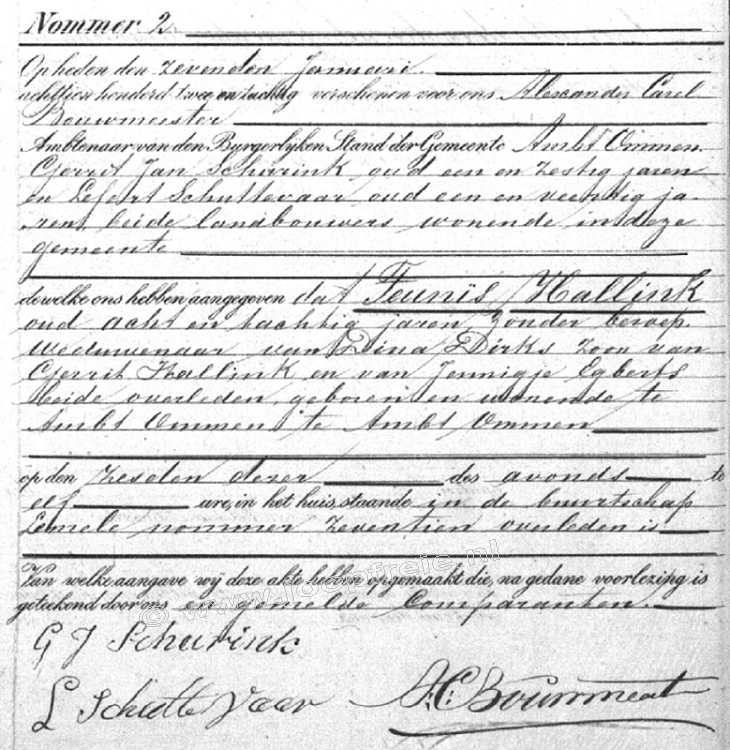 Nommer 2
Op heden den zevenden Januari
achttien honderd twee en tachtig verschenen voor ons Alexander Carel
Bouwmeester
Ambtenaar van den Burgerlijken Stand der Gemeente Ambt Ommen.
Gerrit Jan Schurink oud een en zestig jaren
en Lefert Schuttevaar oud een en veertig ja-
ren, beide landbouwers wonende in deze
gemeente
dewelke ons hebben aangegeven dat Teunis Hallink
oud acht en tachtig jaren zonder beroep.
weduwenaar van Dina Dirks zoon van
Gerrit Hallink en van Jennigje Egberts
beide overleden, geboren en wonende te
Ambt Ommen te Ambt Ommen
op den zesden dezer des avonds te
elf ure, in het huis, staande in de buurtschap
Lemele nommer zeventien overleden is
Van welke aangave wij deze akte hebben opgemaakt die, na gedane voorlezing is
geteekend door ons en gemelde Comparanten.
G J Schurink
L Schutte Vaar A. C. Bouwmeest